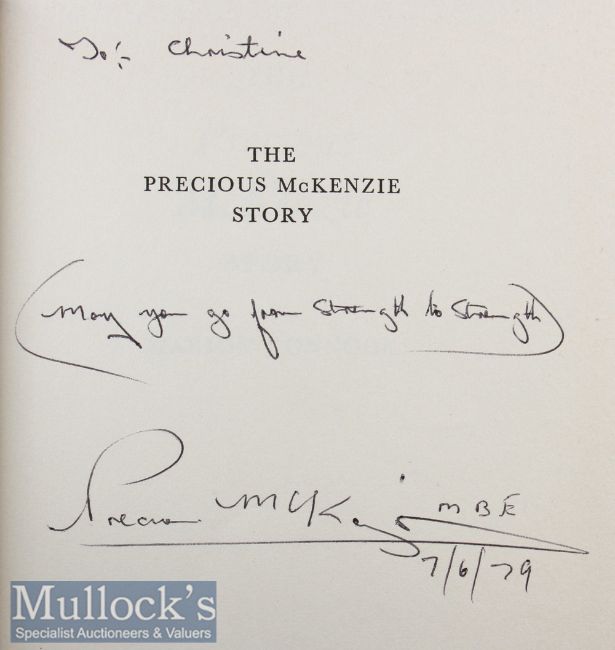 To:- Christine
THE
PRECIOUS McKENZIE
STORY
(May you go from Strength to Strength)
Precious McKenzie MBE
7/6/79
Mullock's
Specialist Auctioneers & Valuers